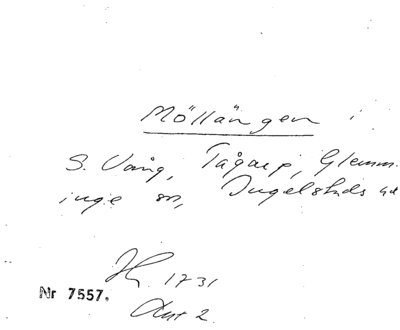 Möllängen i
S. Vång, Tågarp, Glemm-
inge sn, Ingelstads hd
H. 1731
Nr 7557.
Akt 2